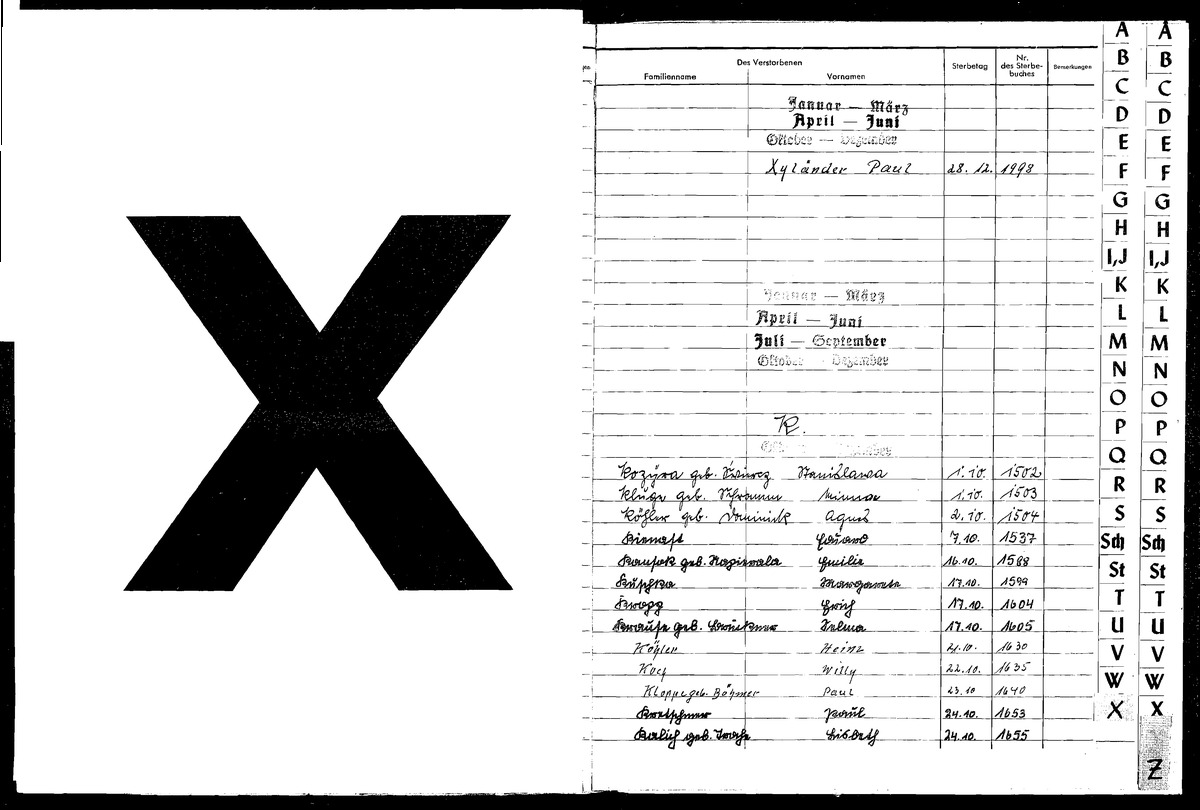 X
Des Verstorbenen
Familienname Vornamen Sterbetag Nr. des Sterbe-buches Bemerkungen
Januar — März
April — Juni
Oktober — Dezember
Xyländer Paul 28. 12. 1998
Januar — März
April — Juni
Juli — September
Oktober — Dezember
K.
Kozyra geb. Swiercz Stanislawa 1.10. 1502
Kluge geb. Schramm Minna 1.10. 1503
Köhler geb. Dominick Agnes 2.10. 1504
Kienast Eduard 7.10. 1537
geb. Napierala Emilie 16.10. 1588
Kuschka Margarete 17.10. 1599
Krapp Erich 17.10. 1604
Krause geb. Brückner Selma 17.10. 1605
Köhler Heinz 21.10. 1630
Koch Willy 22.10. 1635
Kloppe geb. Böhmer Paul 23.10 1640
Kretschmer Paul 24.10. 1653
Kalich geb. Lisbeth 24.10. 1655
A A
B B
C C
D D
E E
F F
G G
H H
I,J I,J
K K
L L
M M
N N
O O
P P
Q Q
R R
S S
Sch Sch
St St
T T
U U
V V
W W
X X
Z